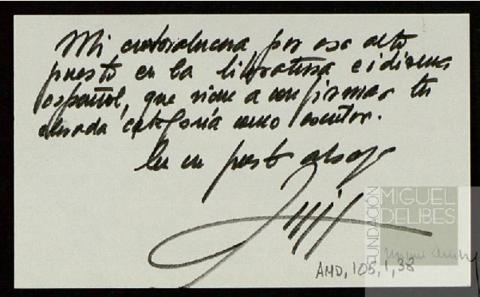 Mi enhorabuena, por ese alto
puesto en la literatura e idioma
español, que viene a confirmar tu
elevada categoría como escritor.
un abrazo
FUNDACIÓN
MIGUEL
DELIBES
AMD, 105, 1, 38